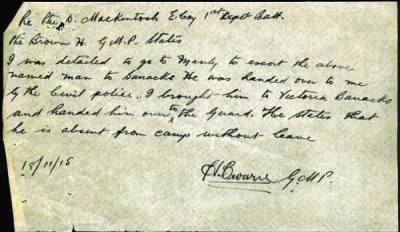 Re Pte D. Mackintosh E Coy 1st Depot Batt.
Pte Brown H. G.M.P. States
I was detailed to go to Manly to escort the above
named man to Barracks He was handed over to me
by the Civil police. I brought him to Victoria Barracks
and handed him over to the Guard. He states that
he is absent from camp without leave
18/11/15
H. Browne G.M.P.